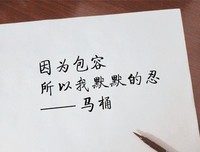 因为包容
所以我默默的忍
——马桶